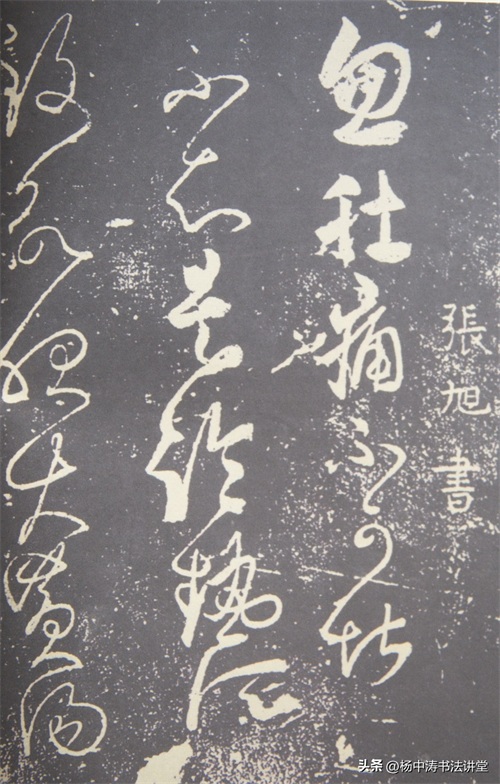 張旭書
忽肚痛不可堪
不知是冷熱所
致欲服大黃湯
头条 @杨中涛书法讲堂